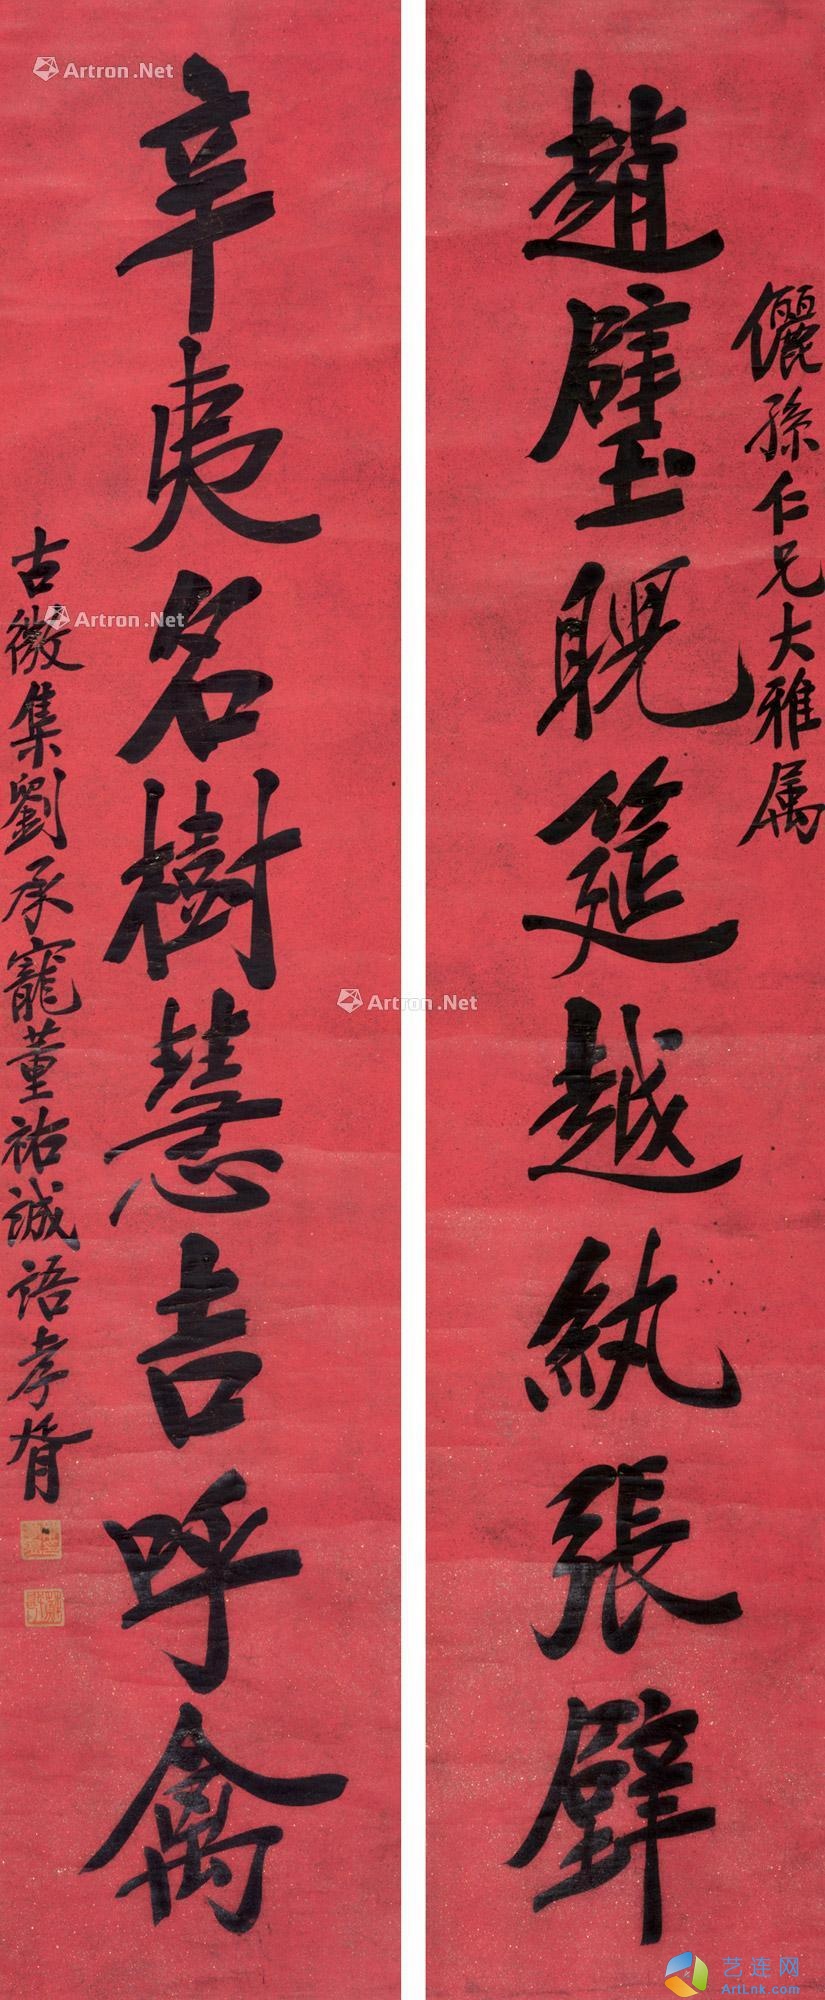 儷孫仁兄大雅属
趙璧睨筵越紈張壁
辛夷名樹慧吉呼禽
古微集劉承寵董祐誠語孝胥
Artron.Net
Artron.Net
Artron.Net
艺连网
ArtLink.com